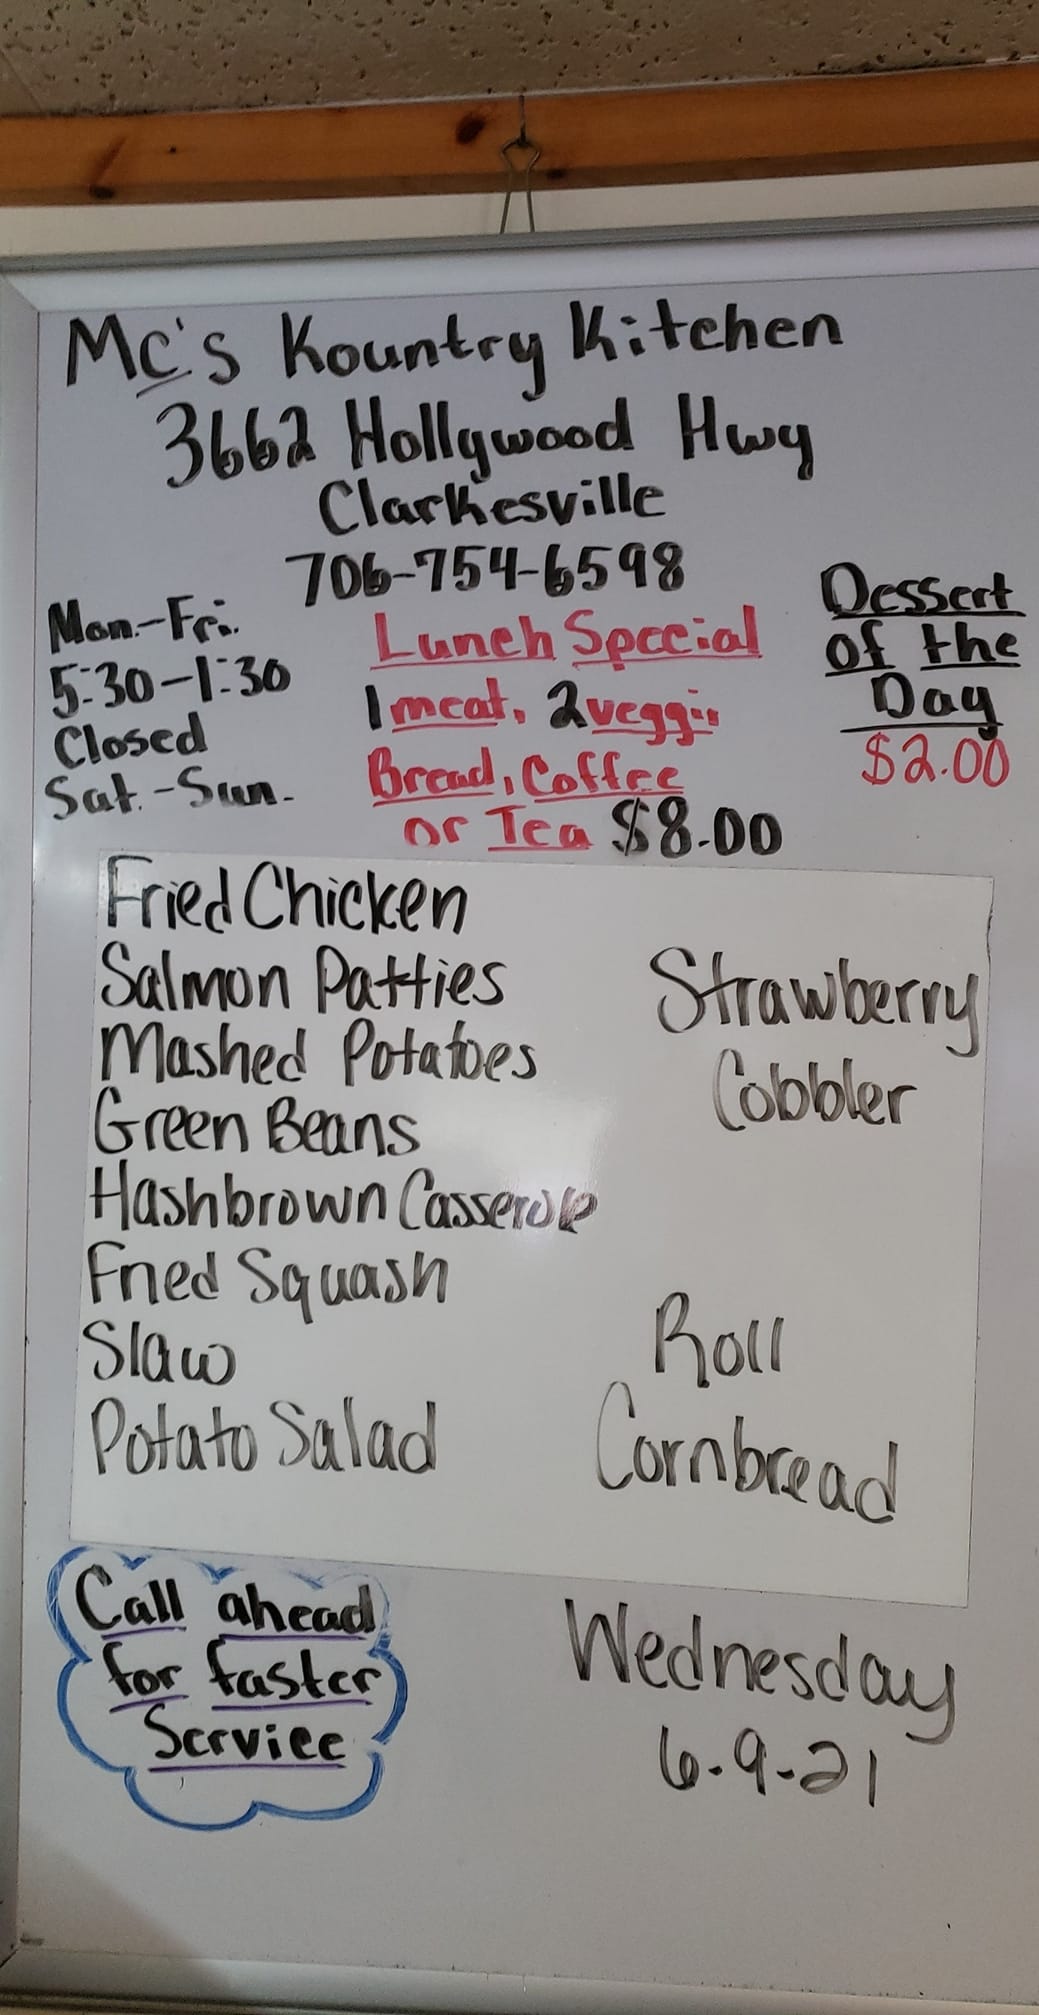 Mc's Kountry Kitchen
3662 Hollywood Hwy
Clarkesville
706-754-6598
Mon.-Fri.
5:30-1:30
Closed
Sat.-Sun.
Lunch Special
1 meat, 2 veggies
Bread, Coffee
or Tea $8.00
Dessert
of the
Day
$2.00
Fried Chicken
Salmon Patties
Mashed Potatoes
Green Beans
Hashbrown Casserole
Fried Squash
Slaw
Potato Salad
Strawberry
Cobbler
Roll
Cornbread
Call ahead
for faster
Service
Wednesday
6-9-21